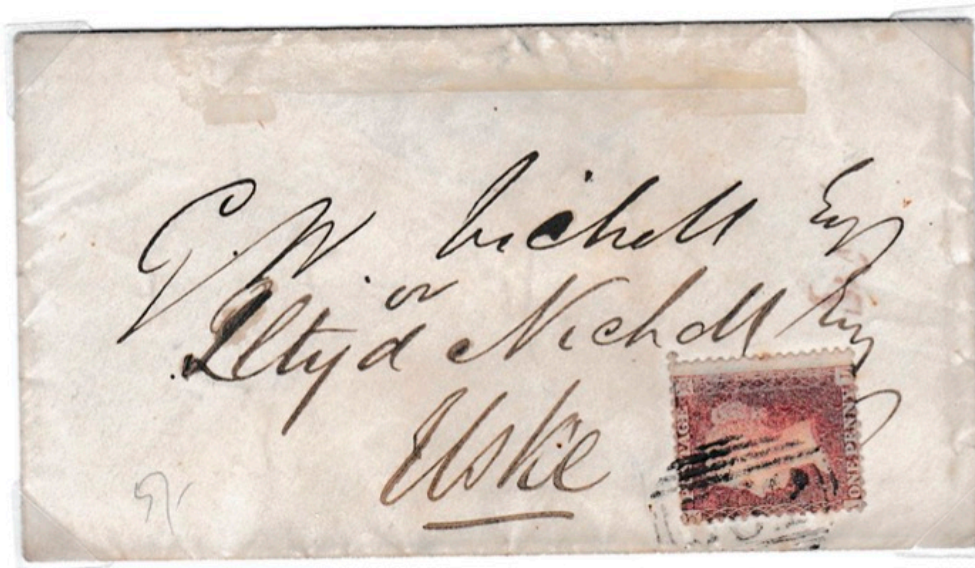 G. W. Nicholl Esq
or
Iltyd Nicholl Esq
Uske
POSTAGE
ONE PENNY